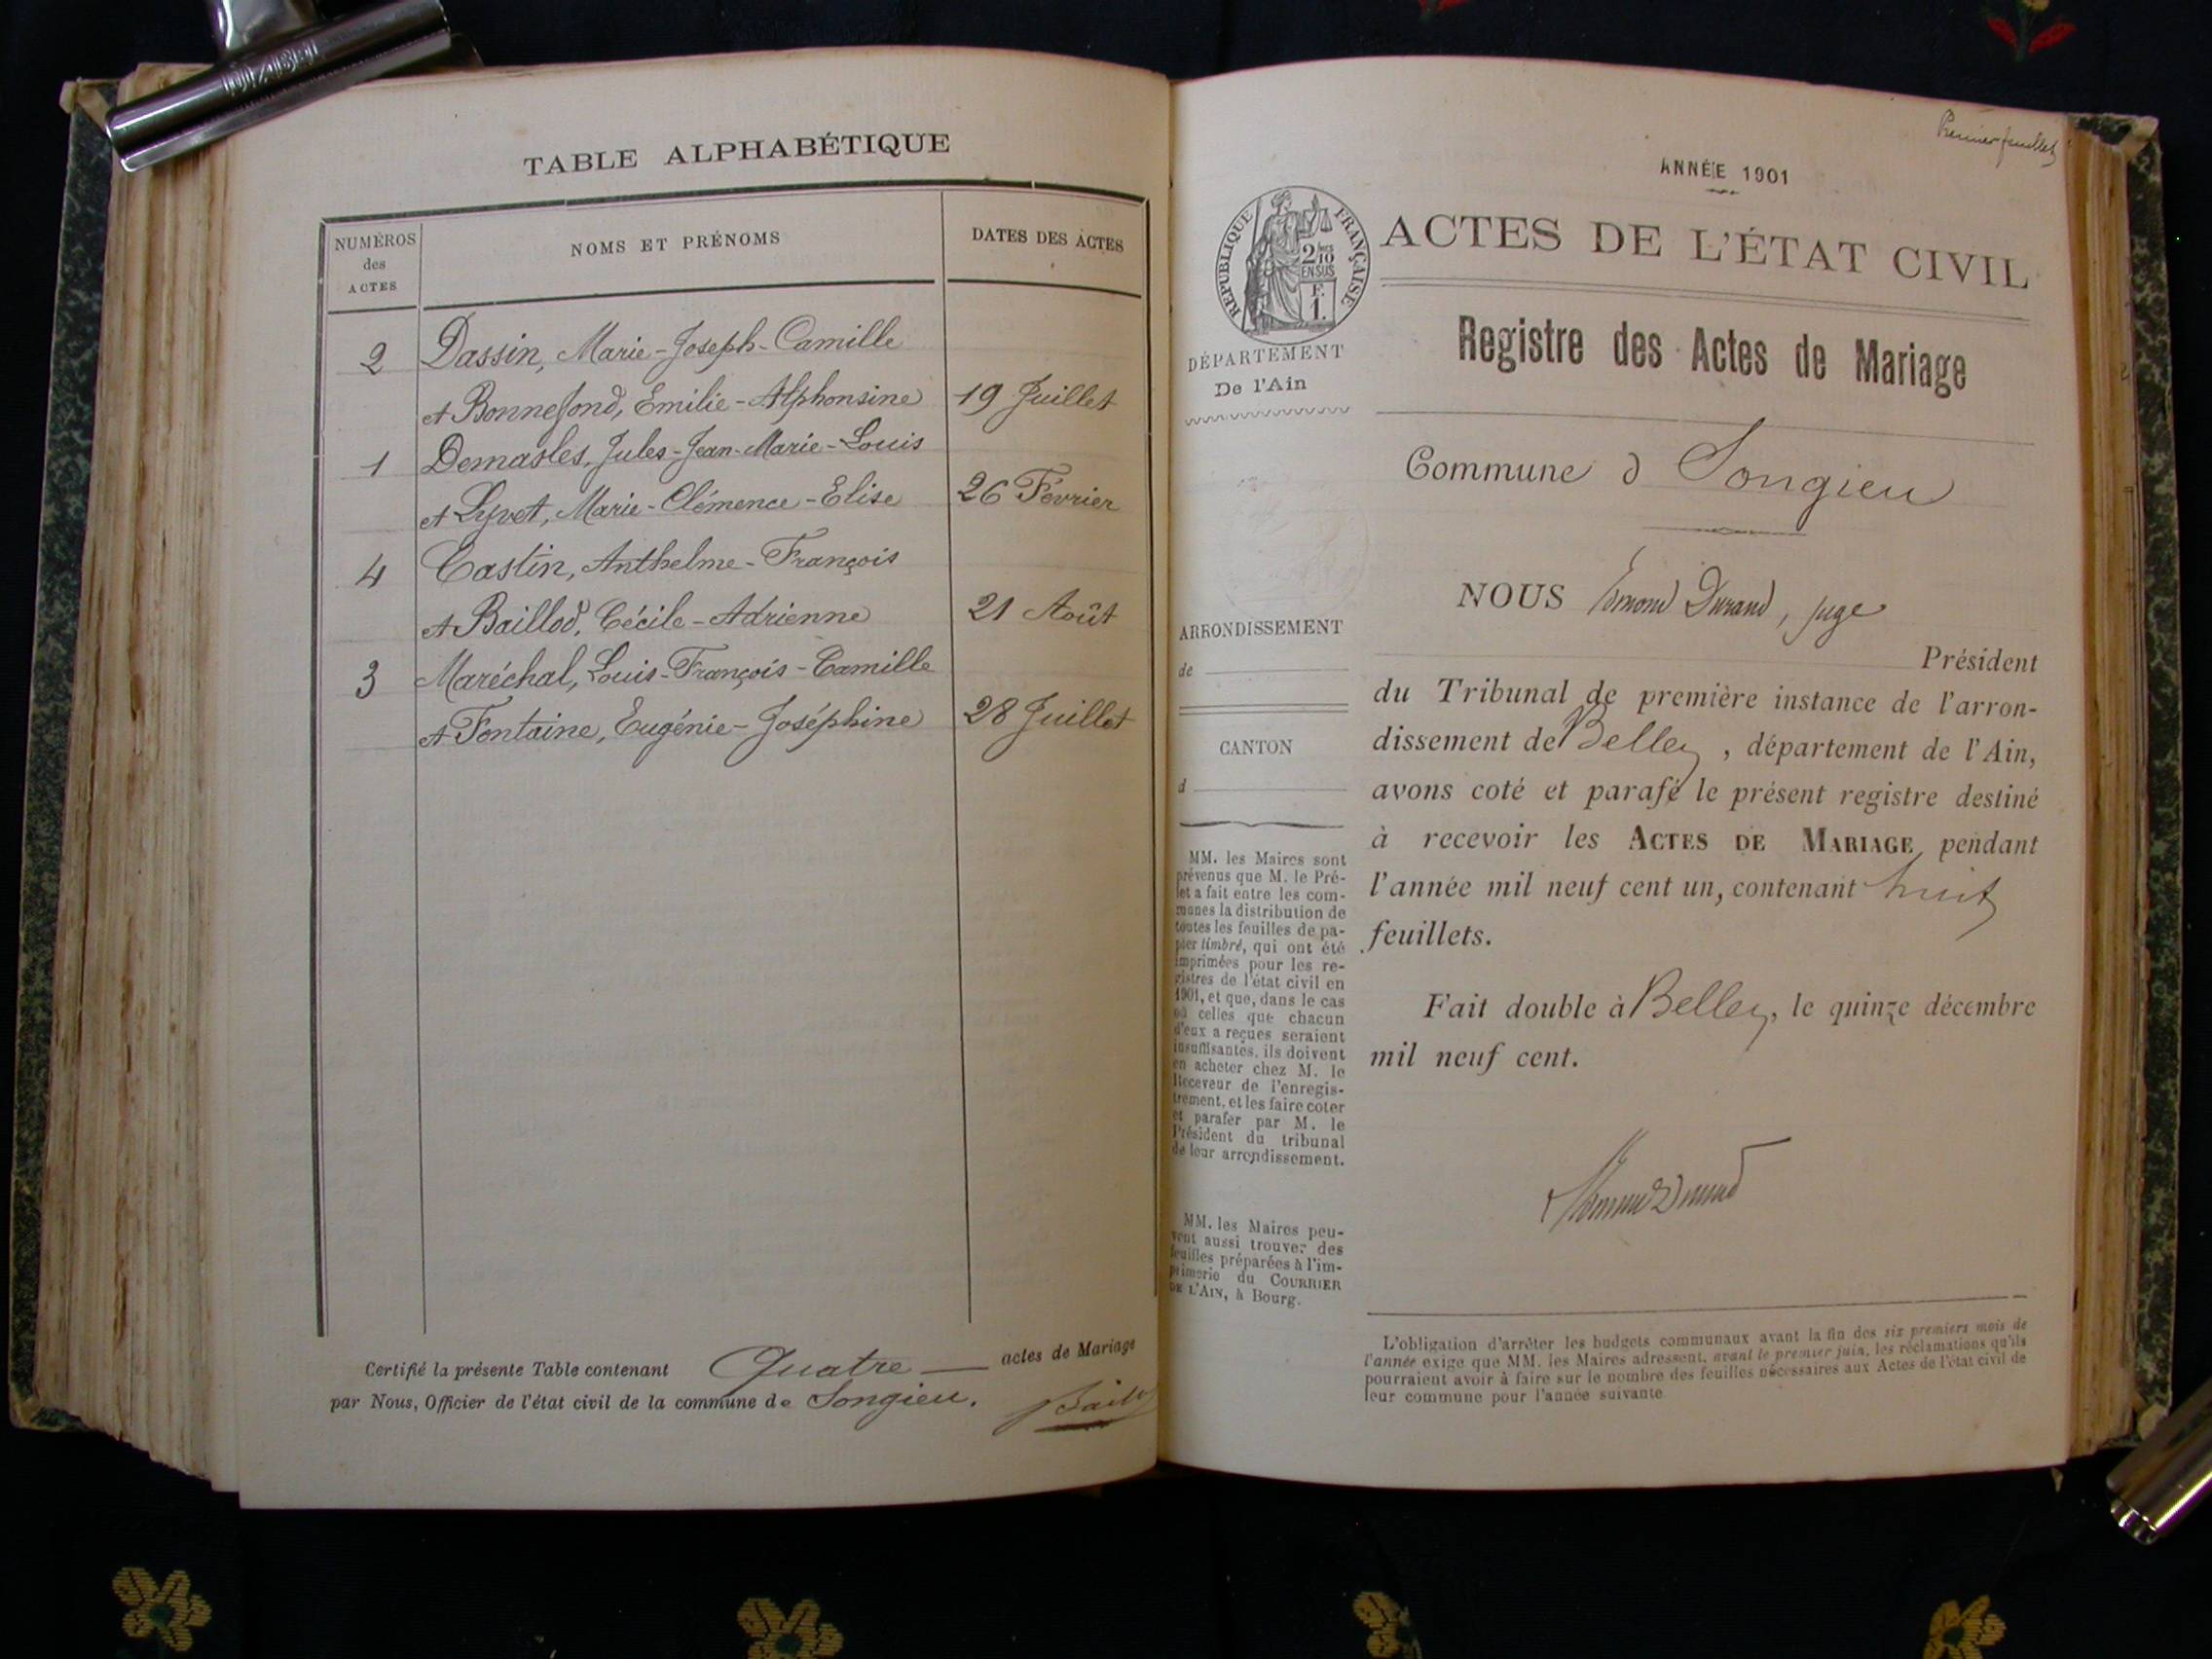 TABLE ALPHABÉTIQUE
NUMÉROS
des
ACTES
NOMS ET PRÉNOMS
DATES DES ACTES
2 Dassin, Marie-Joseph-Camille
et Bonnefond, Emilie-Alphonsine 19 Juillet
1 Demasles, Jules-Jean-Marie-Louis
et Lyvet, Marie-Clémence-Elise 26 Février
4 Castin, Anthelme-François
et Baillod, Cécile-Adrienne 21 Août
3 Maréchal, Louis-François-Camille
et Fontaine, Eugénie-Joséphine 28 Juillet
Certifié la présente Table contenant Quatre actes de Mariage
par Nous, Officier de l'état civil de la commune de Songieu.
Premier feuillet
ANNÉE 1901
RÉPUBLIQUE FRANÇAISE
2/10
EN SUS
F.
1.
ACTES DE L'ÉTAT CIVIL
DÉPARTEMENT
De l'Ain
Registre des Actes de Mariage
Commune d Songieu
ARRONDISSEMENT
de
CANTON
d
MM. les Maires sont
prévenus que M. le Pré-
fet a fait entre les com-
munes la distribution de
toutes les feuilles de pa-
pier timbré, qui ont été
imprimées pour les re-
gistres de l'état civil en
1901, et que, dans le cas
où celles que chacun
d'eux a reçues seraient
insuffisantes, ils doivent
en acheter chez M. le
Receveur de l'enregis-
trement, et les faire coter
et parafer par M. le
Président du tribunal
de leur arrondissement.
MM. les Maires peu-
vent aussi trouver des
feuilles préparées à l'im-
primerie du COURRIER
DE L'AIN, à Bourg.
NOUS Edmond Durand, juge
Président
du Tribunal de première instance de l'arron-
dissement de Belley, département de l'Ain,
avons coté et parafé le présent registre destiné
à recevoir les ACTES DE MARIAGE pendant
l'année mil neuf cent un, contenant huit
feuillets.
Fait double à Belley, le quinze décembre
mil neuf cent.
L'obligation d'arrêter les budgets communaux avant la fin des six premiers mois de
l'année exige que MM. les Maires adressent, avant le premier juin, les réclamations qu'ils
pourraient avoir à faire sur le nombre des feuilles nécessaires aux Actes de l'état civil de
leur commune pour l'année suivante